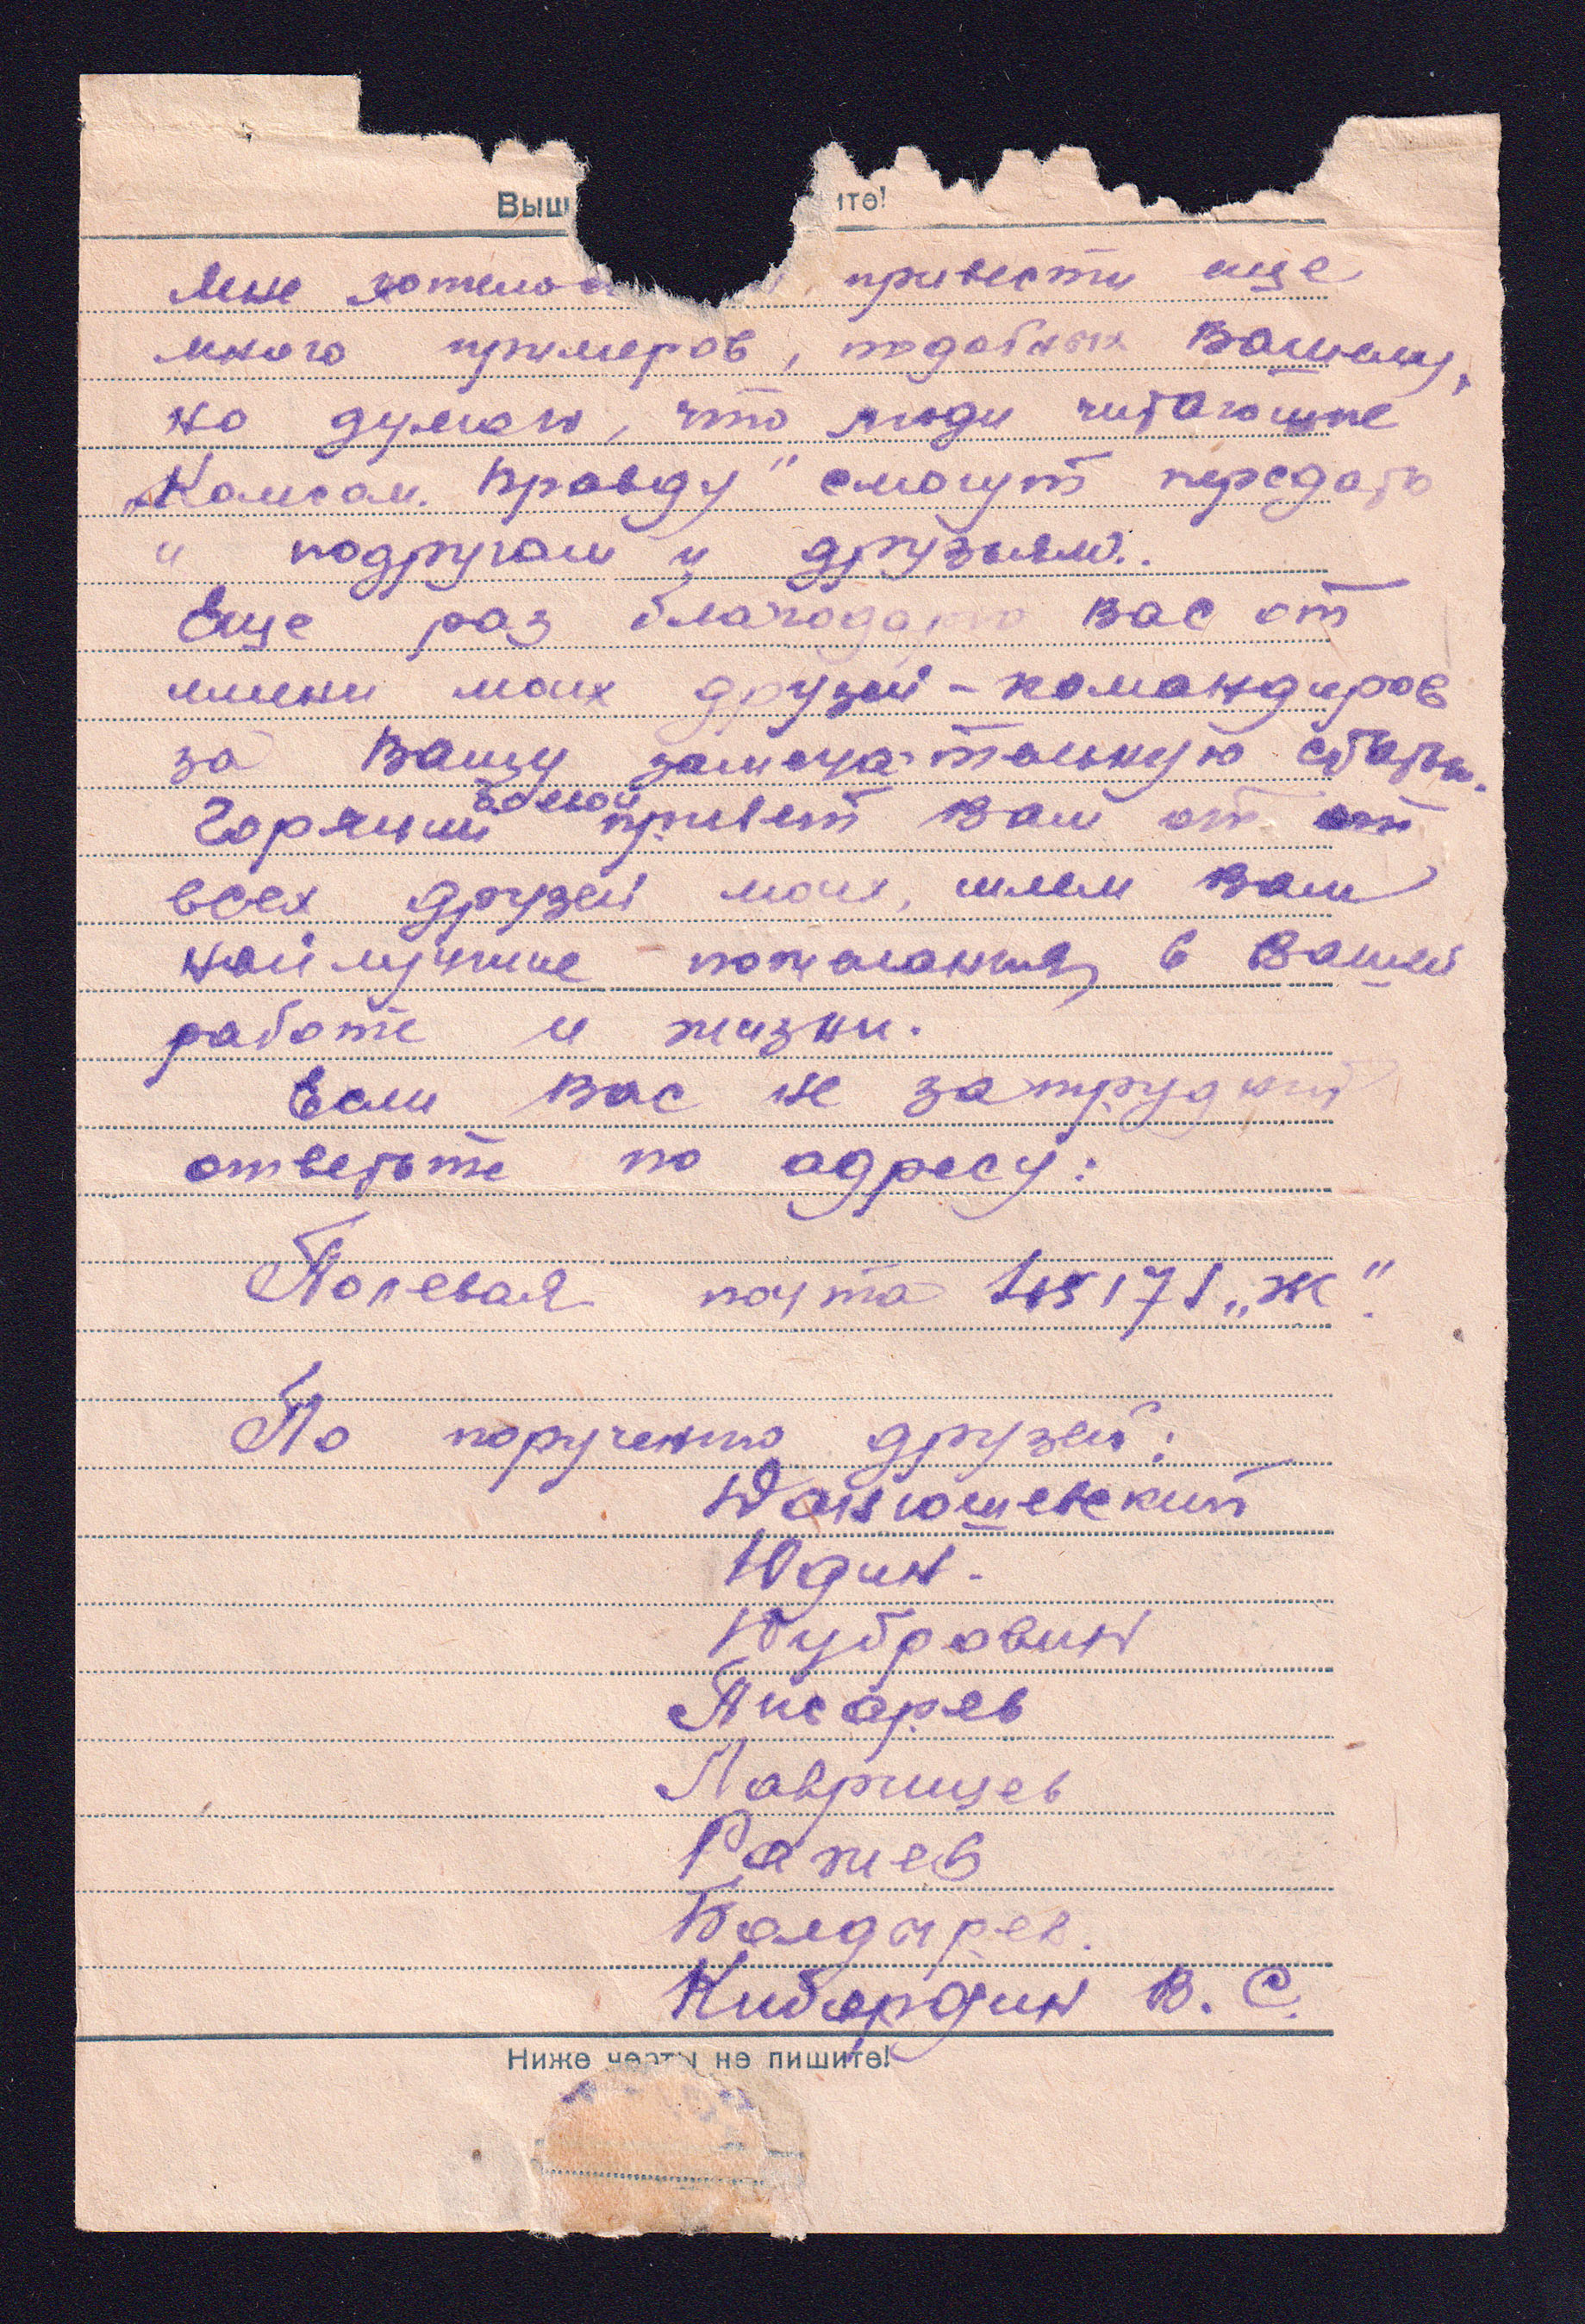 Выш ите!
Мне хотело привести еще
много примеров, подобных Вашему,
но думаю, что люди читающие
„Комсом. Правду" смогут передать
и подругам и друзьям.
Еще раз благодарю Вас от
имени моих друзей - командиров
за Вашу замечательную статью.
боевой
Горячий привет Вам от от
всех друзей моих, шлем Вам
найлучшие пожелания, в Вашей
работе и жизни.
Если Вас не затруднит
ответьте по адресу:
Полевая почта „Ж".
По поручению друзей:
Юдин.
Дубровин
Писарев
Лаврищев
Ражев
Болдырев.
Кибардин В. С.
Ниже черты не пишите!